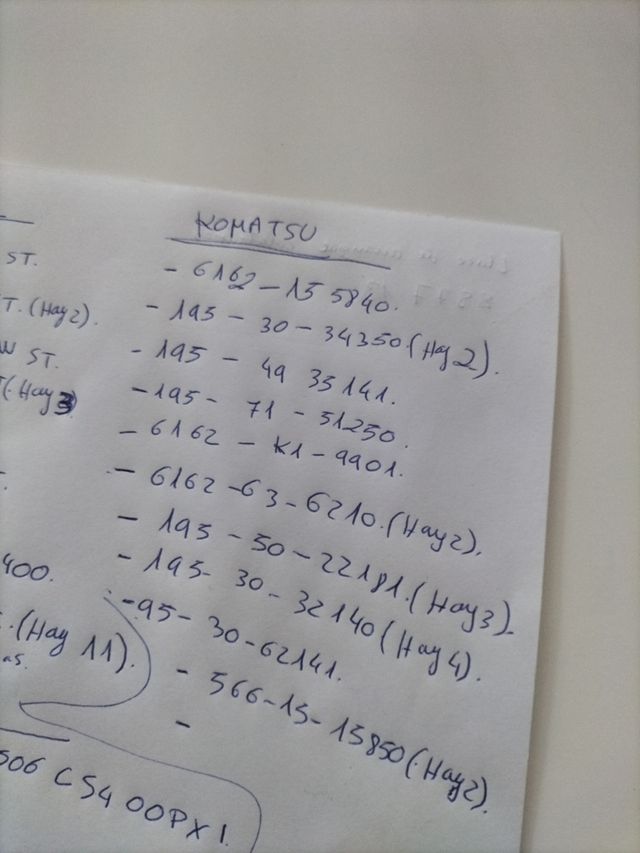 KOMATSU
- 6162 - 15 5840.
- 195 - 30 - 34350 (Hay 2).
- 195 - 49 35141.
- 195 - 71 - 51250.
- 6162 - K1 - 9901.
- 6162 - 63 - 6210. (Hay 2).
- 195 - 50 - 22181. (Hay 3).
- 195 - 30 - 32140 (Hay 4).
- 95 - 30 - 62141.
- 566 - 15 - 15850 (Hay 2).
-
ST.
T. (Hay 2).
W ST.
T (Hay 3
400.
. (Hay 11).
as.
506 C54 00PX1.